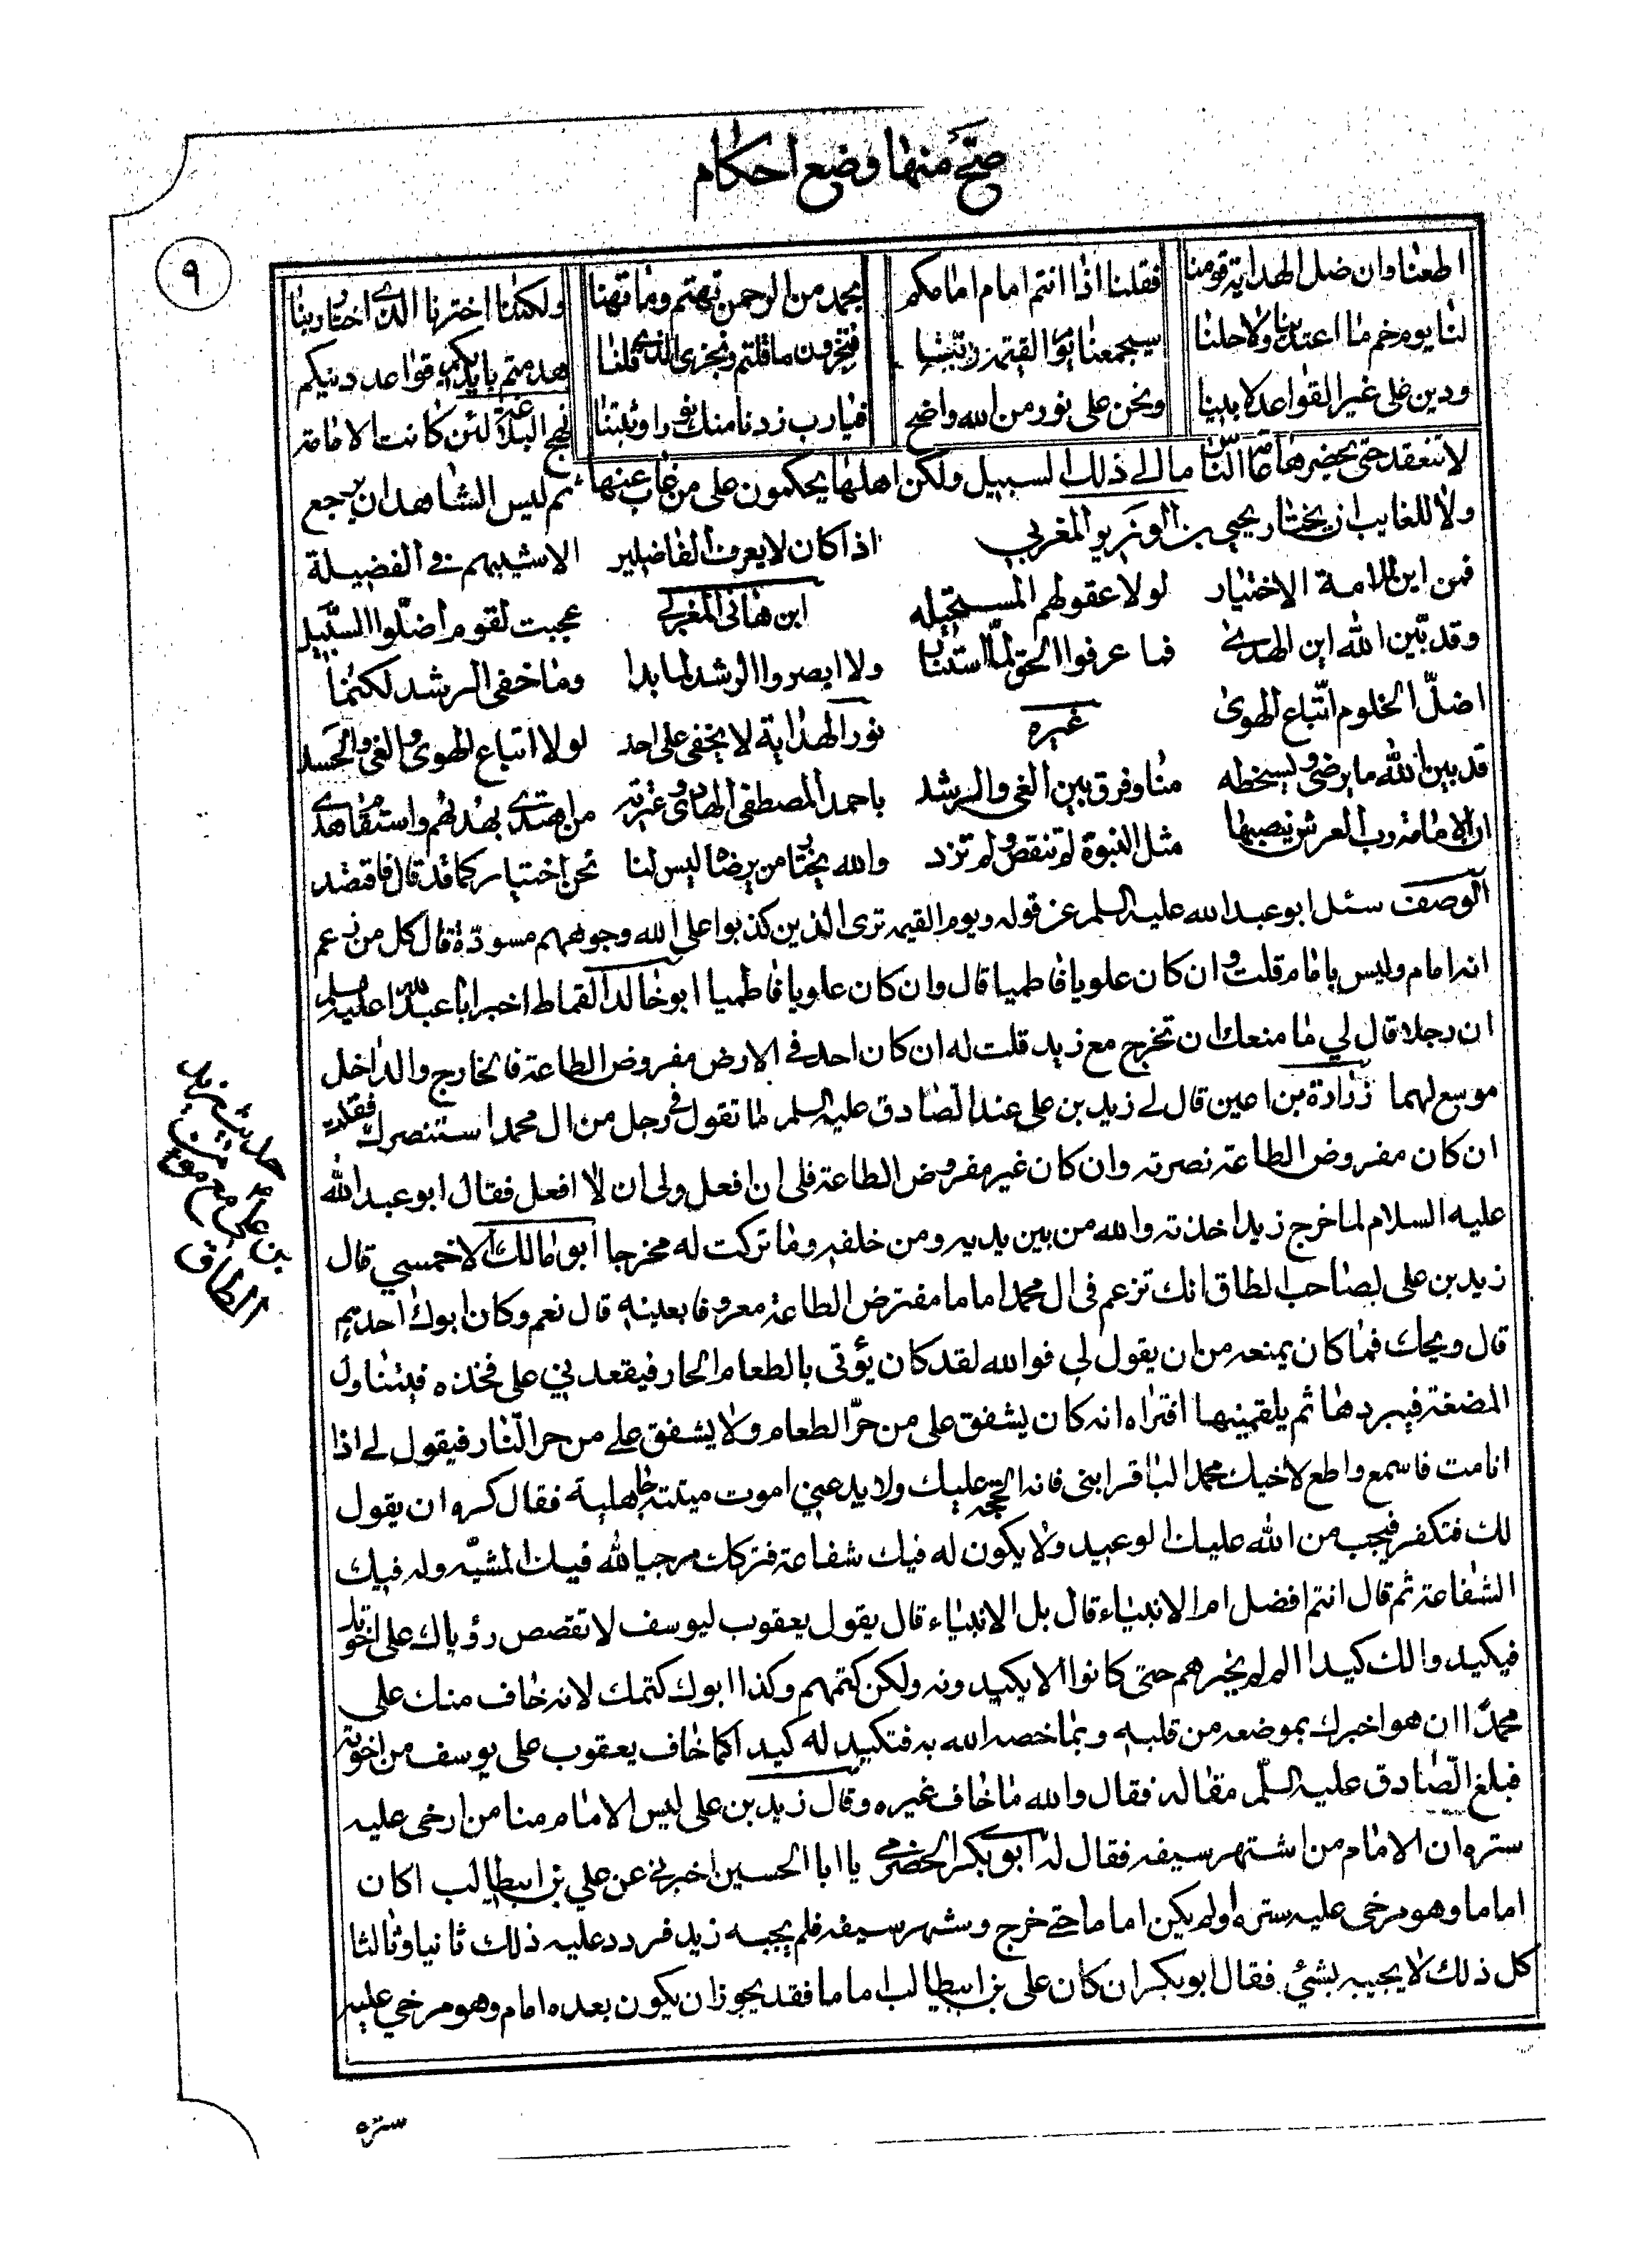 صحّ منها وضع احكام
٩
اطعنا وان ضل الهداية قومنا فقلنا اذا انتم امام امامكم بحمد من الرحمن تهتم وما تهنا ولكننا اخترنا الذي اختار ربنا
لنا يوم خم ما اعتدينا ولا حلنا سيجمعنا يوم القيمة ربنا فتجزون ما قلتم ونجزى الذي قلنا هدمتم بايديكم قواعد دينكم
ودين على غير القواعد لا يبنا ونحن على نور من الله واضح فيا رب زدنا منك نورا وثبتنا نهج البلاغة لئن كانت الامامة
لا تنعقد حتى يحضرها عامة الناس ما الى ذلك لسبيل ولكن اهلها يحكمون على من غاب عنها ثم ليس الشاهد ان يرجع
ولا للغايب ان يختار يحيى بن الوزير المغربي اذا كان لا يعرف الفاضلين الا شبيههم في الفضيلة
فمن اين للامة الاختيار لولا عقولهم المستحيله ابن هانى المغربي عجبت لقوم اضلّوا السّبيل
وقد بيّن الله اين الهدى فما عرفوا الحق لمّا استنار ولا ابصروا الرشد لما بدا وما خفى الرشد لكنما
اضلّ الحلوم اتّباع الهوى غيره نور الهداية لا يخفى على احد لولا اتباع الهوى والغي والحسد
قد بين الله ما يرضى ويسخطه منا وفرق بين الغى والرشد باحمد المصطفى الهادى وعترته من اهتدى بهداهم واستقام هدى
ان الامامة رب العرش ينصبها مثل النبوة لم تنقص ولم تزد والله يختار من يرضاه ليس لنا نحن اختيار كما قد قال فاقتصد
الوصف سئل ابو عبد الله عليه السلم عن قوله ويوم القيمة ترى الذين كذبوا على الله وجوههم مسودّة قال كل من زعم
انه امام وليس بامام قلت وان كان علويا فاطميا قال وان كان علويا فاطميا ابو خالد القماط اخبر ابا عبد الله عليه السلم
ان رجلا قال لي ما منعك ان تخرج مع زيد قلت له ان كان احد في الارض مفروض الطاعة فالخارج والداخل
موسع لهما زرارة بن اعين قال لي زيد بن على عند الصادق عليه السلم ما تقول في رجل من ال محمد استنصرك فقلت
ان كان مفروض الطاعة نصرته وان كان غير مفروض الطاعة فلى ان افعل ولى ان لا افعل فقال ابو عبد الله
عليه السلام لما خرج زيد اخذته والله من بين يديه ومن خلفه وما تركت له مخرجا ابو مالك الاحمسي قال
زيد بن على لصاحب الطاق انك تزعم فى ال محمد اماما مفترض الطاعة معروفا بعينه قال نعم وكان ابوك احدهم
قال ويحك فما كان يمنعه من ان يقول لي فوالله لقد كان يؤتى بالطعام الحار فيقعدني على فخذه فيتناول
المضغة فيبردها ثم يلقمنيها افتراه انه كان يشفق على من حرّ الطعام ولا يشفق على من حر النّار فيقول لي اذا
انا مت فاسمع واطع لاخيك محمد الباقر ابنى فانه الحجة عليك ولا يدعني اموت ميتة جاهلية فقال كره ان يقول
لك فتكفر فيجب من الله عليك الوعيد ولا يكون له فيك شفاعة فتركك مرجيا لله فيك المشيّه وله فيك
الشفاعة ثم قال انتم افضل ام الانبياء قال بل الانبياء قال يقول يعقوب ليوسف لا تقصص رؤياك على اخوتك
فيكيدوا لك كيدا لم لم يخبرهم حتى كانوا لا يكيدونه ولكن كتمهم وكذا ابوك كتمك لانه خاف منك على
محمد ان هو اخبرك بموضعه من قلبه وبما خصه الله به فتكيد له كيدا كما خاف يعقوب على يوسف من اخوته
فبلغ الصادق عليه السلم مقاله فقال والله ما خاف غيره وقال زيد بن على ليس الامام منا من ارخى عليه
ستره ان الامام من اشتهر سيفه فقال له ابو بكر الحضرمي يا ابا الحسين اخبرني عن علي بن ابيطالب اكان
اماما وهو مرخى عليه ستره اولم يكن اماما حتى خرج وشهر سيفه فلم يجبه زيد فردد عليه ذلك ثانيا وثالثا
كل ذلك لا يجيبه بشئ فقال ابو بكر ان كان على بن ابيطالب اماما فقد يجوز ان يكون بعده امام وهو مرخي عليه
حديث زيد
بن على مع مؤمن
الطاق
ستره